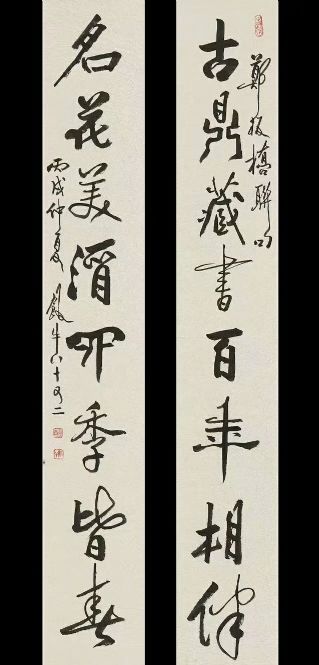 古鼎藏書百年相伴
鄭板橋聯句
名花美酒四季皆春
丙戌仲夏 牛八十 二